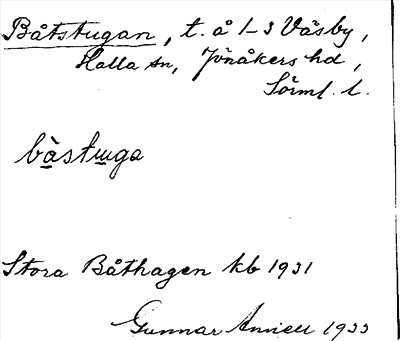 Båtstugan, t. å 1-3 Väsby,
Halla sn, Jönåkers hd,
Sörml. l.
bà̱stu̱ga
Stora Båthagen kb 1931
Gunnar Annell 1933